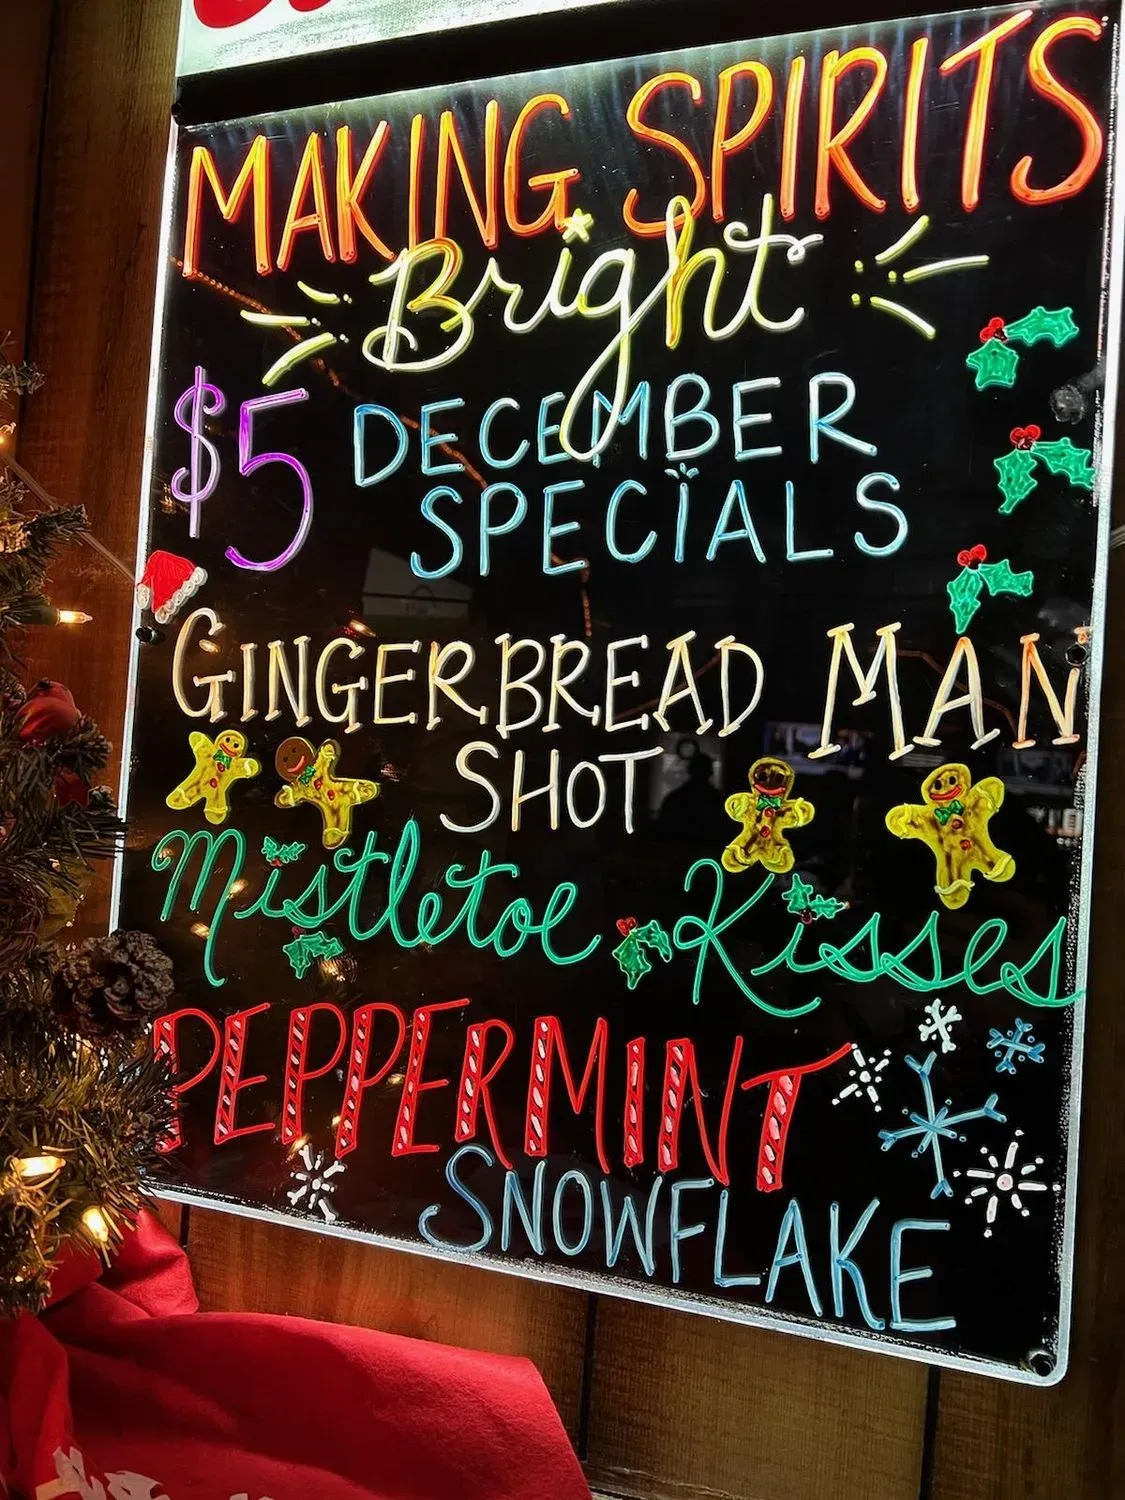 MAKING SPIRITS
Bright
$5 DECEMBER
SPECIALS
GINGERBREAD MAN
SHOT
Mistletoe Kisses
PEPPERMINT
SNOWFLAKE